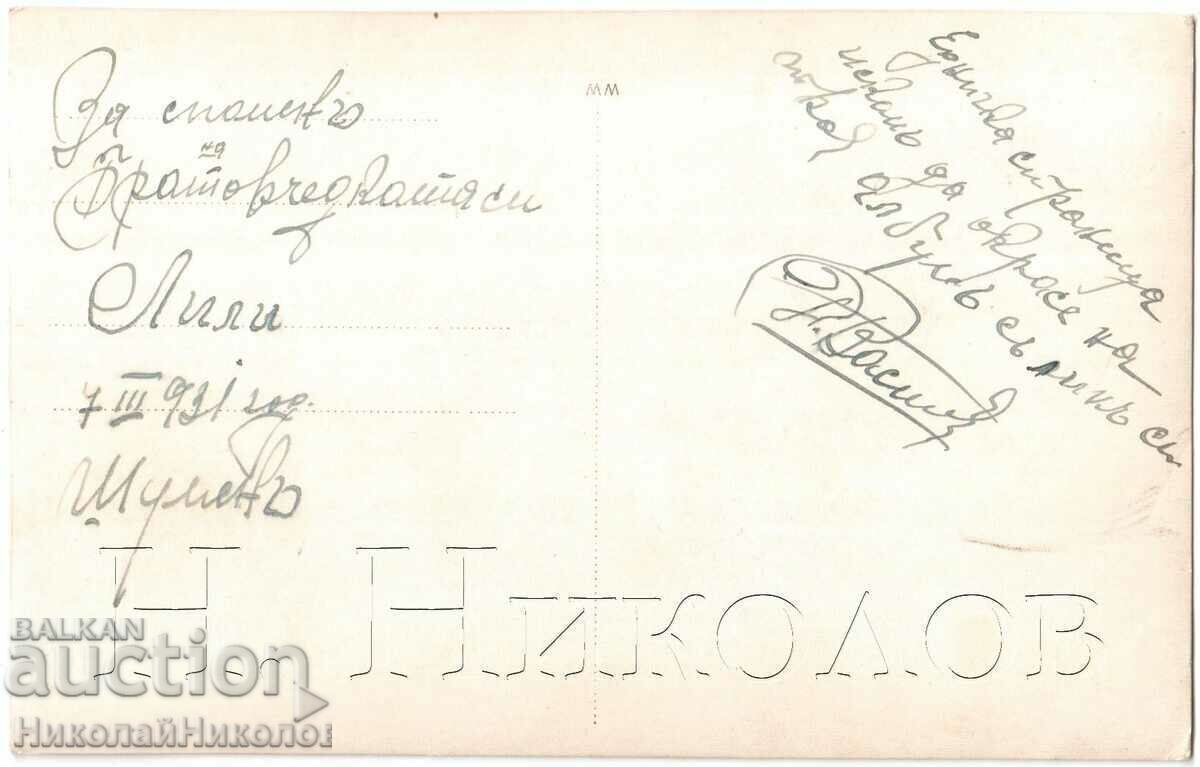 За споменъ
на
Братовчедката си
Лили
7 III 931 год.
Шуменъ
ММ
Една страница
искамъ да окрася на
твоя албумъ съ ликъ си
Н. Николов
BALKAN
auction
НиколайНиколов